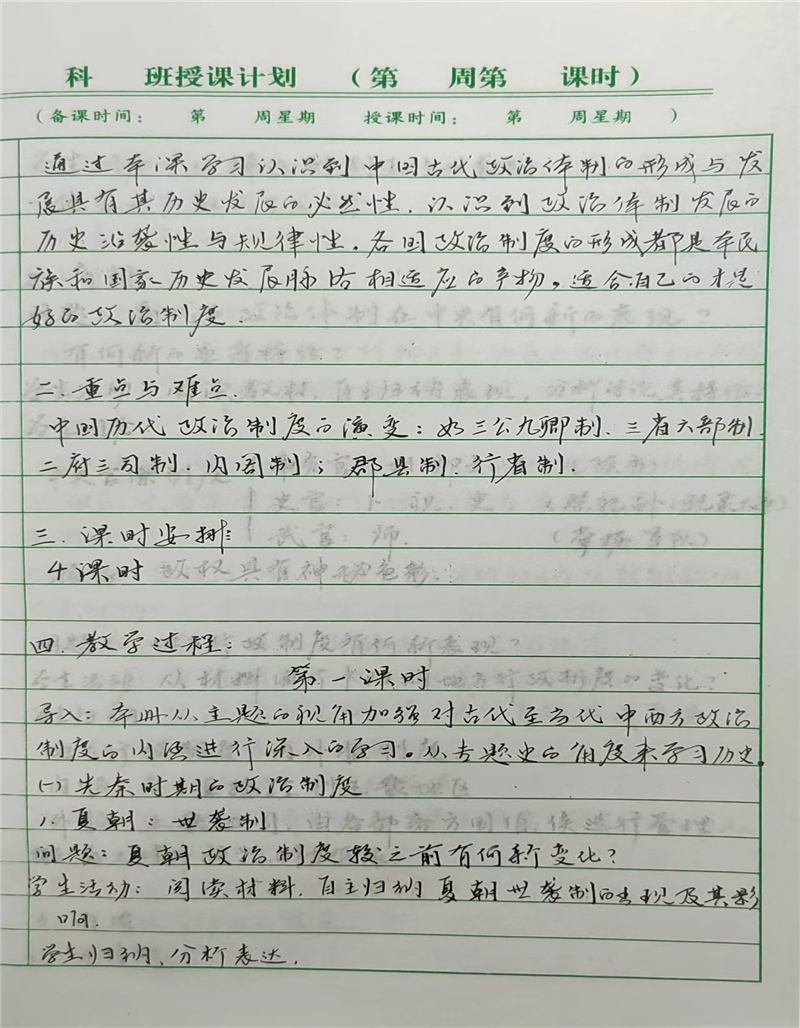 科 班授课计划 (第 周第 课时)
(备课时间： 第 周星期 授课时间： 第 周星期 )
通过本课学习认识到中国古代政治体制的形成与发
展具有其历史发展的必然性，认识到政治体制发展的
历史沿袭性与规律性。各国政治制度的形成都是本民
族和国家历史发展脉络相适应的产物。适合自己的才是
好的政治制度.
二.重点与难点.
中国历代政治制度的演变：如三公九卿制、三省六部制、
二府三司制、内阁制；郡县制、行省制.
三.课时安排
4课时
四.教学过程：
第一课时
导入：本册从主题的视角加强对古代至当代中西方政治
制度的内涵进行深入的学习。从专题史的角度来学习历史.
(一)先秦时期的政治制度
1.夏朝：世袭制
问题：夏朝政治制度较之前有何新变化？
学生活动：阅读材料，自主归纳夏朝世袭制的出现及其影
响.
学生归纳、分析表达.